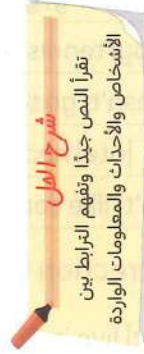 شرح الحل
تقرأ النص جيدًا وتفهم الترابط بين
الأشخاص والأحداث والمعلومات الواردة